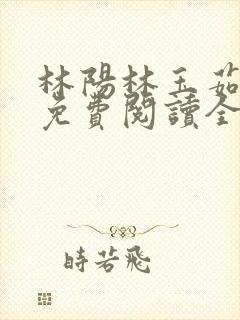 林陽林玉茹
免費閱讀全
時若飛